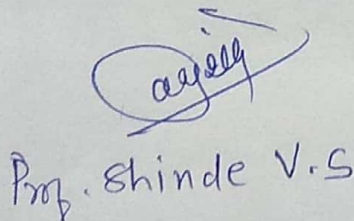 Prof. Shinde V.S